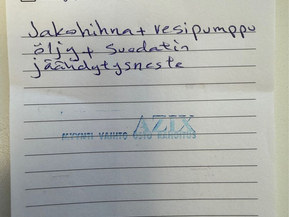 Jakohihna + vesipumppu
öljy + suodatin
jäähdytysneste
AZIX